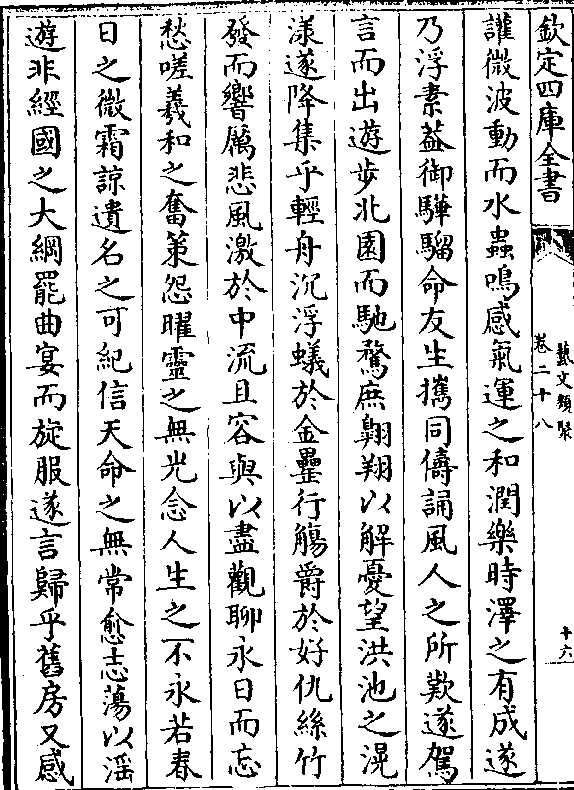 欽定四庫全書
藝文類聚
卷二十八
十六
讙微波動而水蟲鳴感氣運之和潤樂時澤之有成遂
乃浮素葢御驊騮命友生攜同儔誦風人之所歎遂駕
言而出遊步北園而馳騖庶翺翔以解憂望洪池之滉
漾遂降集乎輕舟沉浮蟻於金罍行觴爵於好仇絲竹
發而響厲悲風激於中流且容與以盡觀聊永日而忘
愁嗟羲和之奮策怨曜靈之無光念人生之不永若春
日之微霜諒遺名之可紀信天命之無常愈志蕩以淫
遊非經國之大綱罷曲宴而旋服遂言歸乎舊房又感